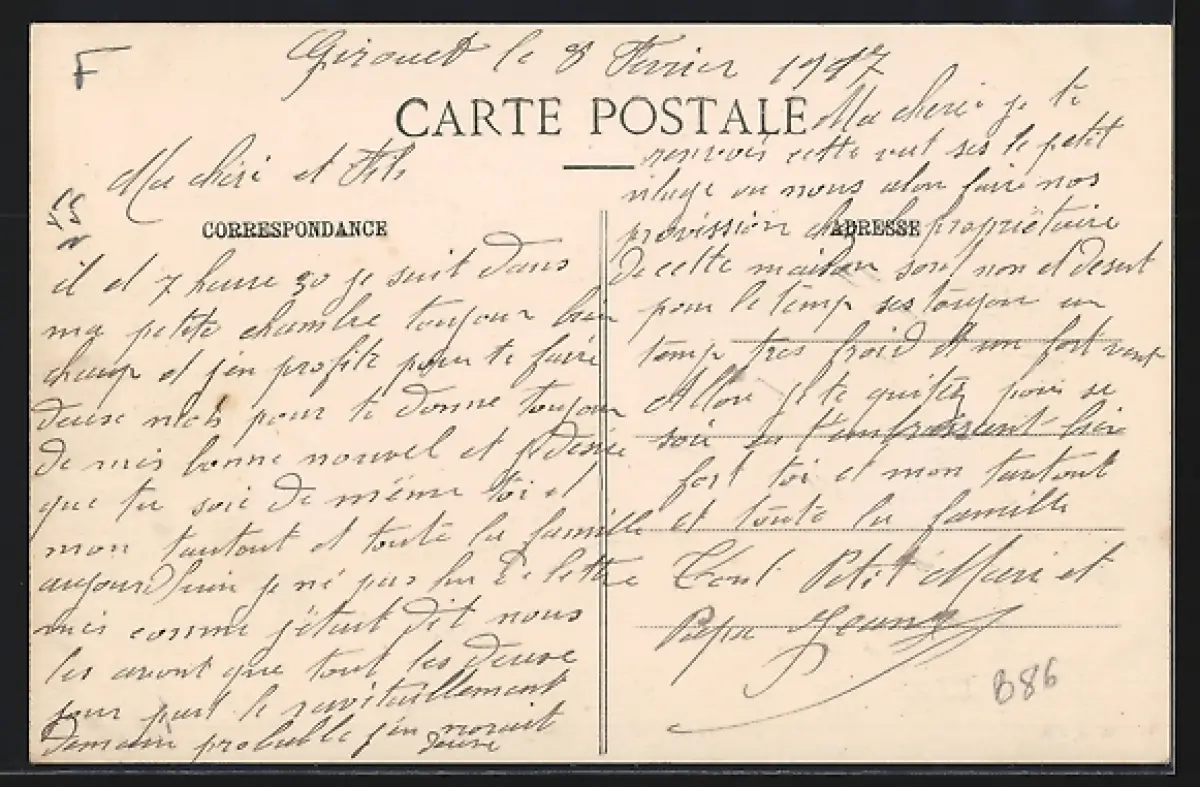 F
Girouet le 8 Fevrier 1917
CARTE POSTALE
Ma cheri et Fils
55
CORRESPONDANCE
il et 7 heure 30 je suit dans
ma petite chambre toujour bien
chaup et j'en profite pour te faire
deuse mots pour te donne toujour
de mes bonne nouvel et desire
que tu soie de même toi et
mon tautout et toute la famille
aujourd'huim je né pas hu de lettre
mes comme j'etait dit nous
les avont que tout les deuse
jour part le ravitaillement
demain probable j'en norait
deuse
Ma cherie je te
renvois cette vut ses le petit
vilage ou nous alon faire nos
provission ADRESSE propriétaire
de cette maison sont non et desut
pour le temp ses toujour un
temp tres froid et un fort vent
Allon je te quitte pour se
soir en t'enbrassent bien
fort toi et mon tautout
et toute la famille
Tont Petit Mari et
Papa Jean
B86